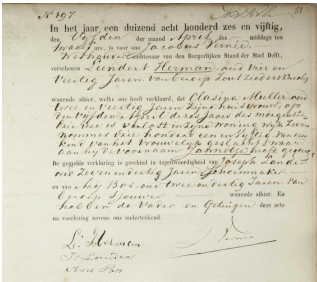 No 197
In het jaar, een duizend acht honderd zes en vijftig,
den vyfden der maand April des middags ten
ure, is voor ons Jacobus Vernée
Wethouder Ambtenaar van den Burgerlijken Stand der Stad Delft,
verschenen Leendert Herman oud vier en
Veertig Jaren van beroep
wonende alhier, welke ons heeft verklaard, dat Clasina Muller oud
twee en veertig Jaren zijne huisvrouw, op
den vyfden April dezes Jaars des morgens ten
drie ure is in zijne woning wyk zeven
nommer vier honderd een en vyftig van een
kind van het vrouwelijk geslacht
aan hy de voornaam
De gegelde verklaring is geschied in tegenwoordigheid van Joseph Lande
oud zeven en veertig Jaren Schoenmaker
en van Arij Bos oud twee en veertig Jaren van
beroep Sjouwer wonende alhier. En
hebben de Vader en Getuigen deze acte
na voorlezing nevens ons onderteekend.
L. Herman
Vernée
Arie Bos